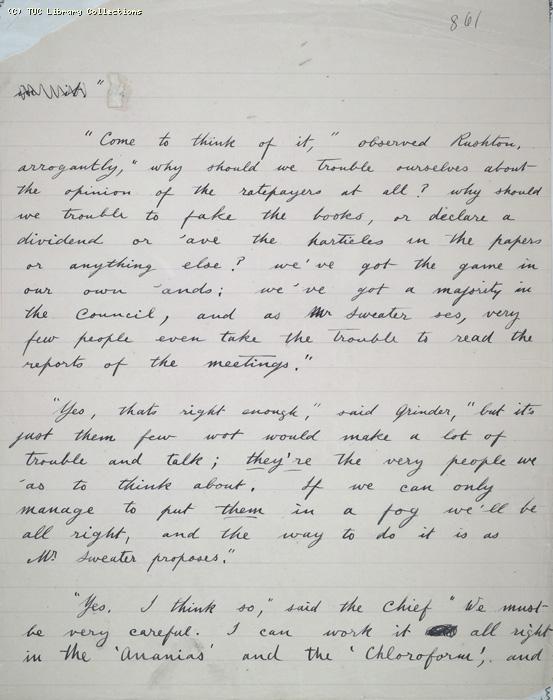 (C) TUC Library Collections
861
"
"Come to think of it," observed Rushton,
arrogantly, "why should we trouble ourselves about
the opinion of the ratepayers at all? why should
we trouble to fake the books, or declare a
dividend or 'ave the harticles in the papers
or anything else? we've got the game in
our own 'ands; we've got a majority in
the Council, and as Mr Sweater ses, very
few people even take the trouble to read the
reports of the meetings."
"Yes, thats right enough," said Grinder, "but it's
just them few wot would make a lot of
trouble and talk; they're the very people we
'as to think about. If we can only
manage to put them in a fog we'll be
all right, and the way to do it is as
Mr Sweater proposes."
"Yes, I think so," said the Chief "We must
be very careful. I can work it all right
in the 'Ananias' and the 'Chloroform', and